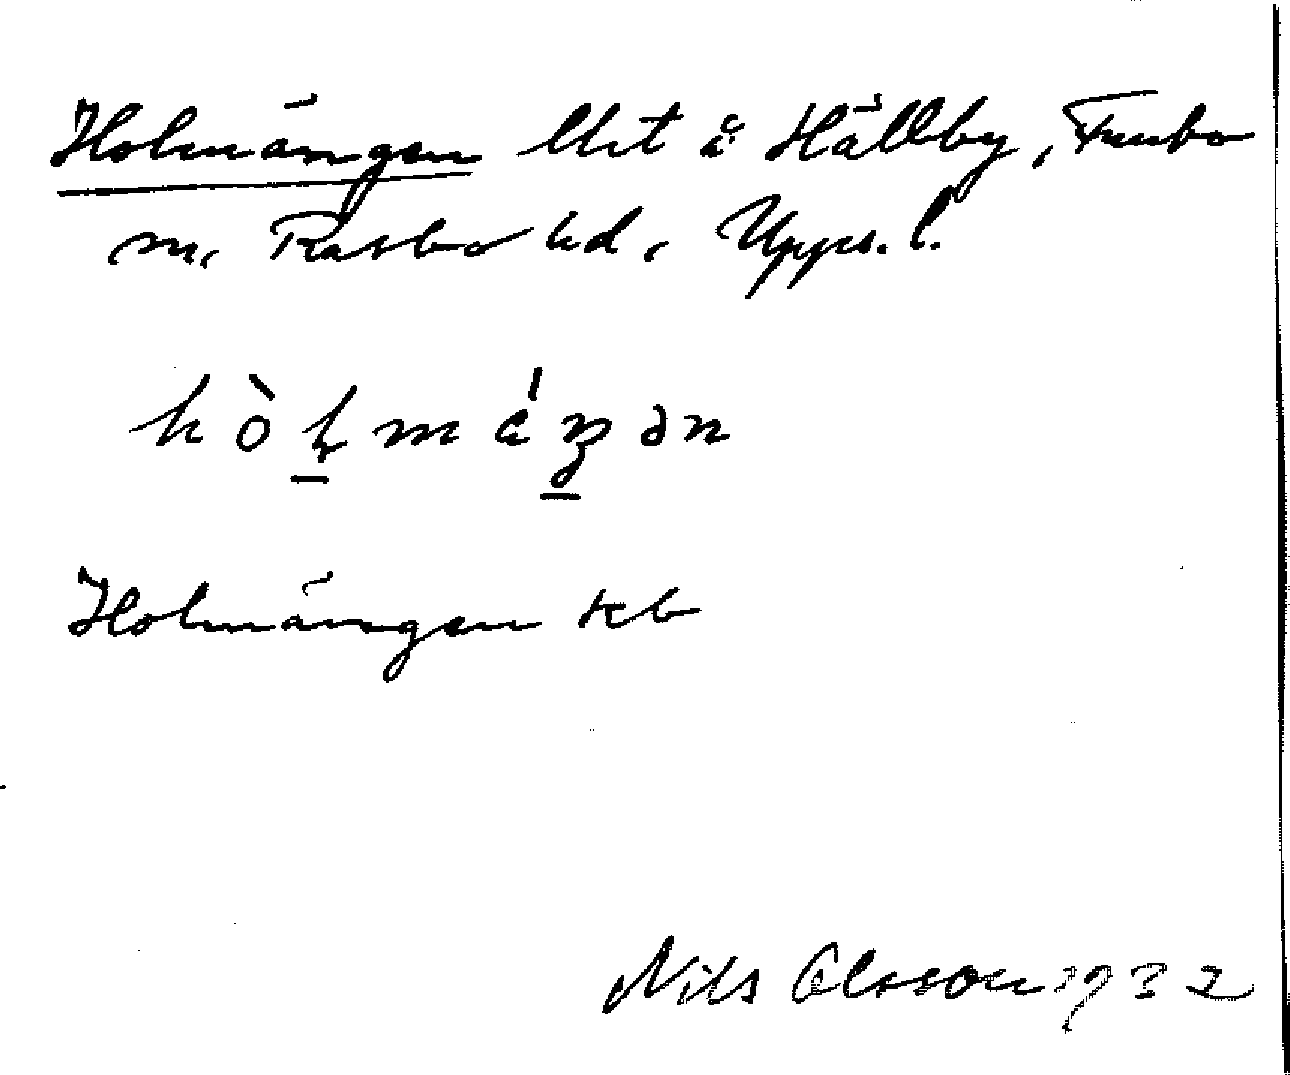 Holmängen utlit å Hällby, Funbo
sn, Rasbo hd, Upps. l.
hòɭmáŋən
Holmängen kb
Nils Olsson 1932